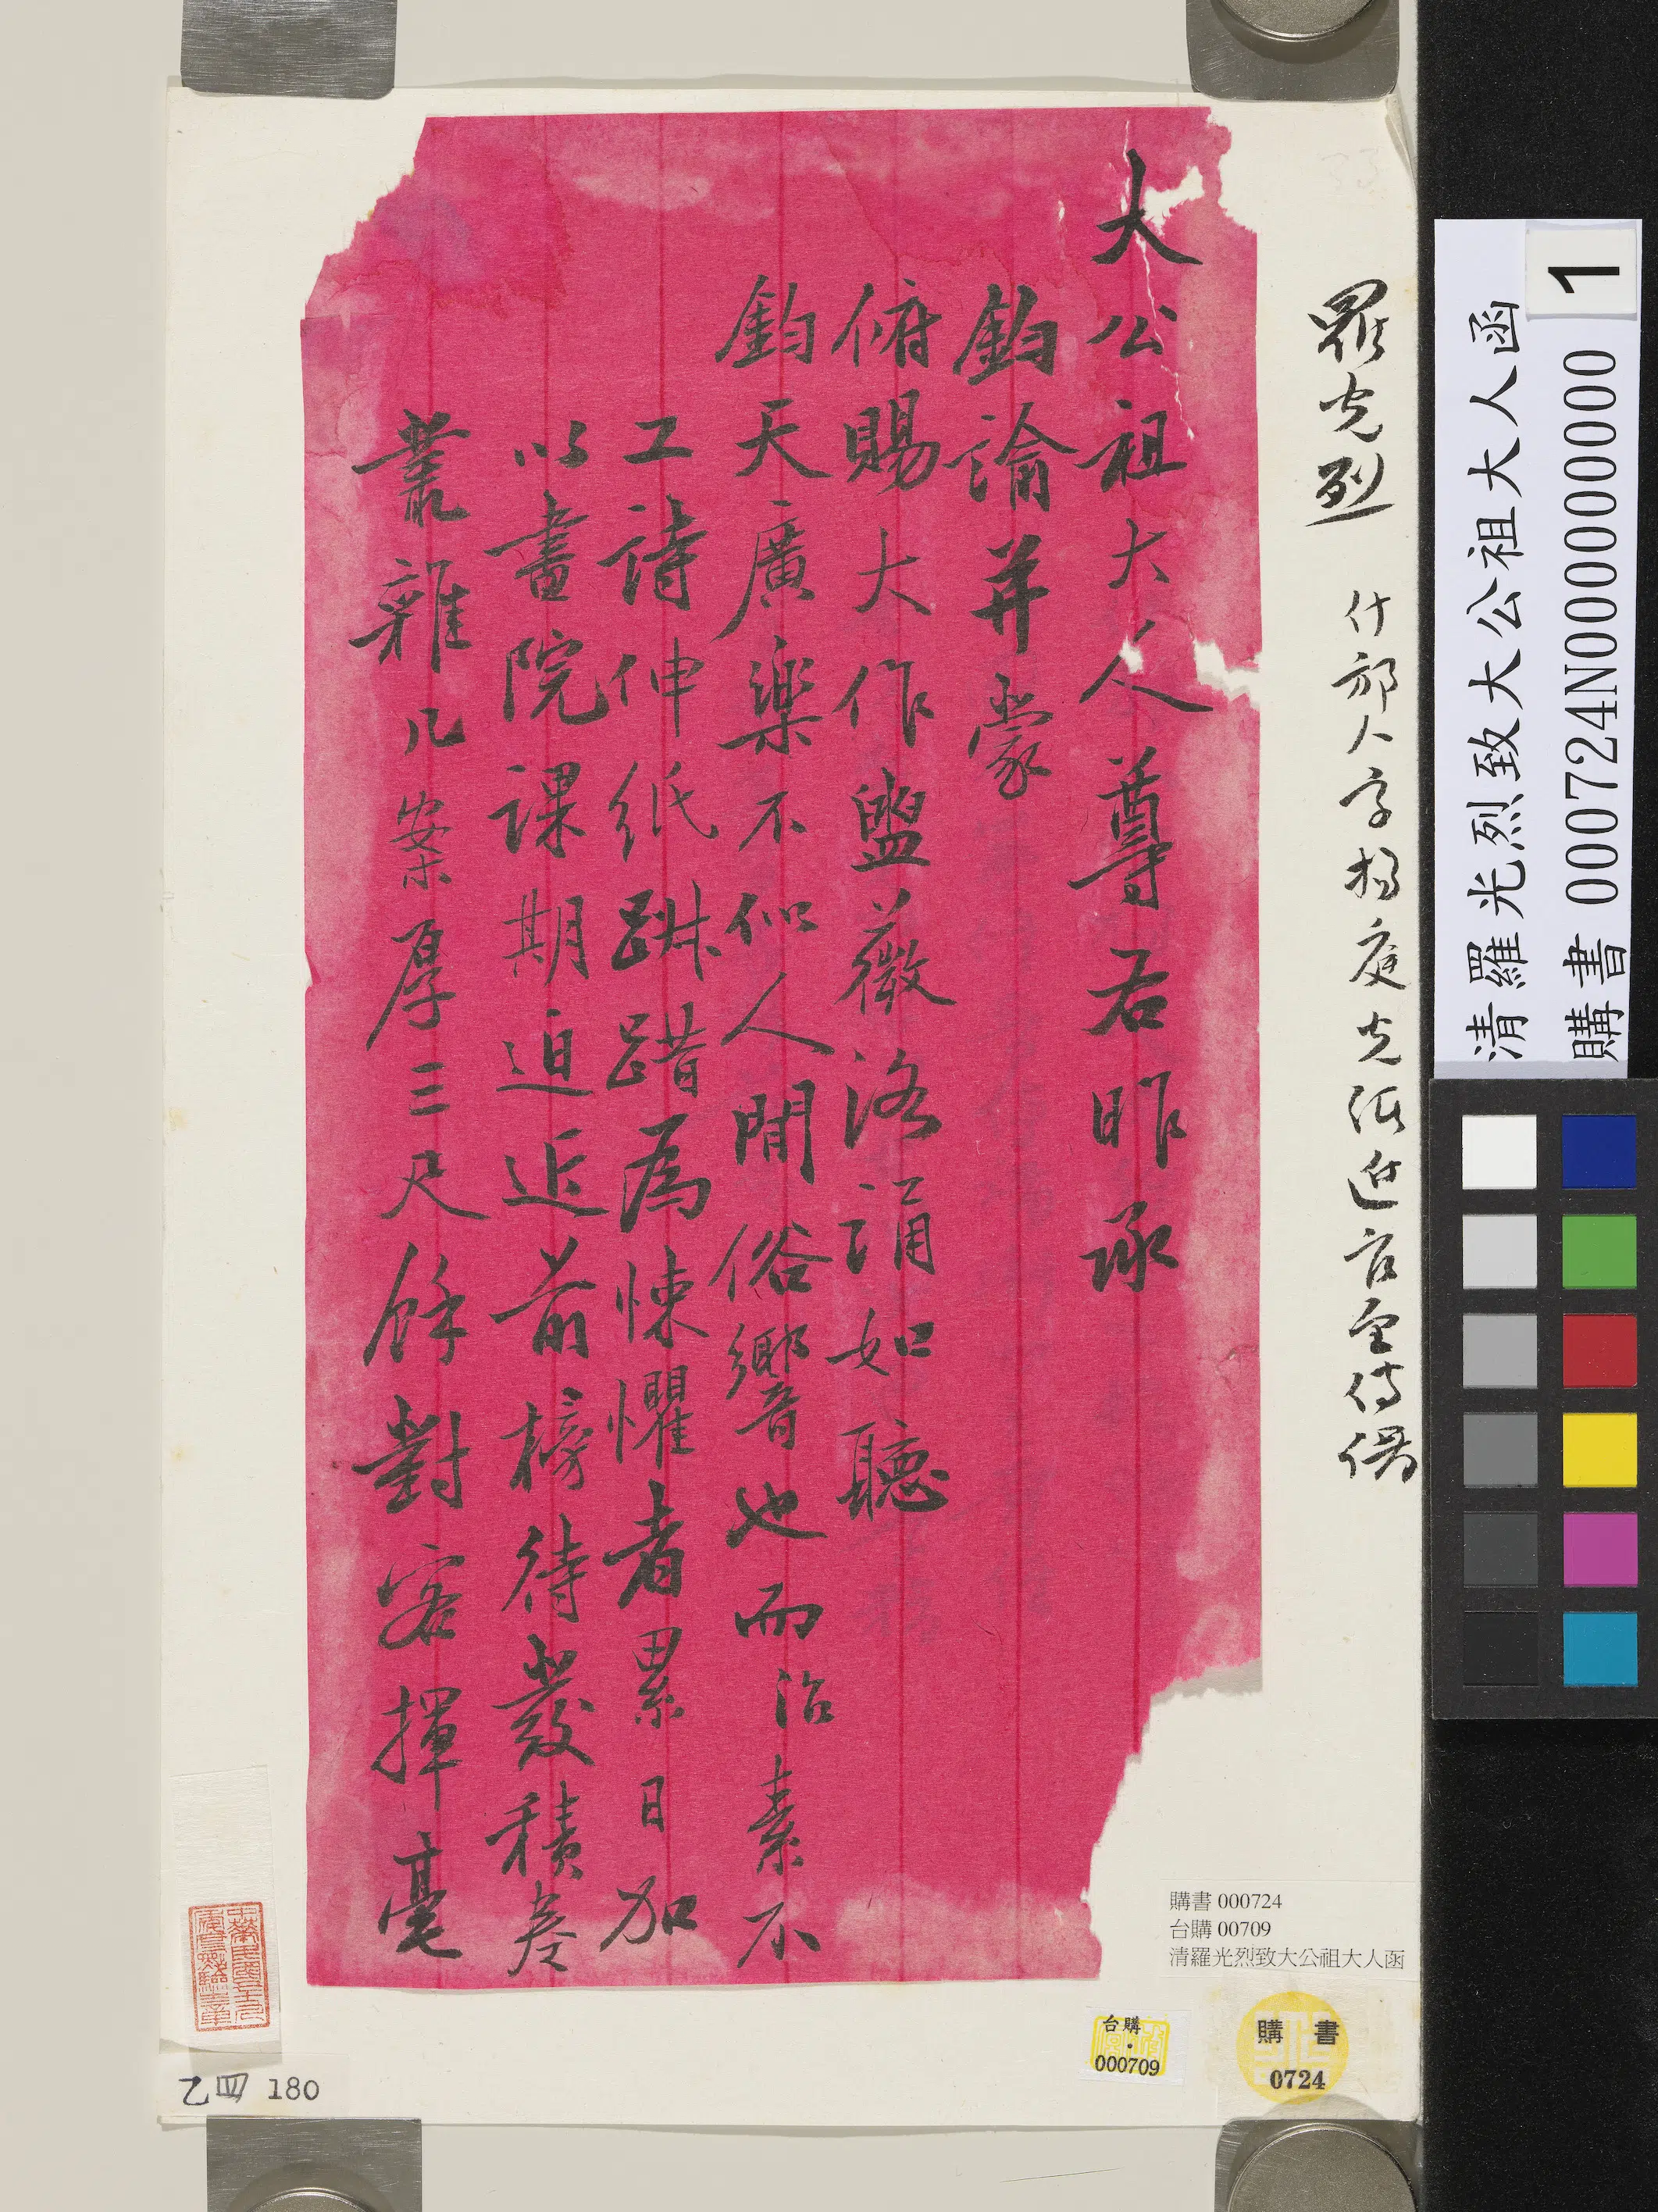 大公祖大人尊右昨承
鈞諭并蒙
俯賜大作盥薇洛誦如聽
鈞天廣樂不似人間俗響也而治素不
工詩伸紙跰踖為悚懼者累日加
以書院課期迫近前榜待發積卷
叢雜几案厚三尺餘對客揮毫
羅光烈
什邡人字
清羅光烈致大公祖大人函
1
購書 000724N000000000
購書 000724
台購 00709
清羅光烈致大公祖大人函
台購・
000709
購書
0724
乙四 180